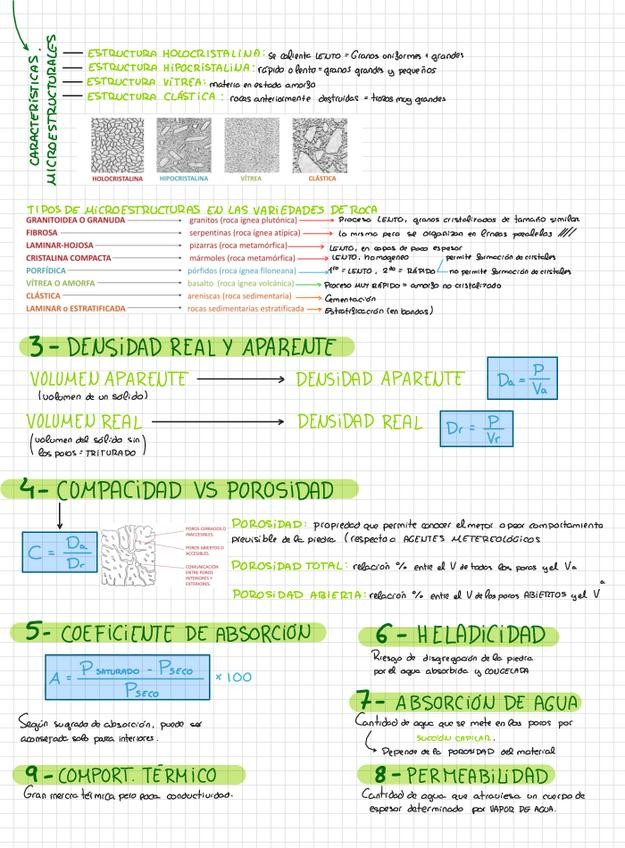 CARACTERÍSTICAS MICROESTRUCTURALES.
ESTRUCTURA HOLOCRISTALINA: se calienta LENTO = Granos uniformes + grandes
ESTRUCTURA HIPOCRISTALINA: rápido o lento = granos grandes y pequeños
ESTRUCTURA VÍTREA: materia en estado amorfo
ESTRUCTURA CLÁSTICA: rocas anteriormente destruídas = trozos muy grandes
HOLOCRISTALINA HIPOCRISTALINA VÍTREA CLÁSTICA
TIPOS DE MICROESTRUCTURAS EN LAS VARIEDADES DE ROCA
GRANITOIDEA O GRANUDA granitos (roca ígnea plutónica) Proceso LENTO, granos cristalizados de tamaño similar
FIBROSA serpentinas (roca ígnea atípica) Lo mismo pero se organizan en líneas paralelas ////
LAMINAR-HOJOSA pizarras (roca metamórfica) LENTO, en capas de poco espesor
CRISTALINA COMPACTA mármoles (roca metamórfica) LENTO, homogéneo permite formación de cristales
PORFÍDICA pórfidos (roca ígnea filoneana) 1ro = LENTO, 2do = RÁPIDO no permite formación de cristales
VÍTREA O AMORFA basalto (roca ígnea volcánica) Proceso MUY RÁPIDO = amorfo no cristalizado
CLÁSTICA areniscas (roca sedimentaria) Cementación
LAMINAR o ESTRATIFICADA rocas sedimentarias estratificada Estratificación (en bandas)
3- DENSIDAD REAL Y APARENTE
VOLUMEN APARENTE DENSIDAD APARENTE Da = P/Va
(volumen de un sólido)
VOLUMEN REAL DENSIDAD REAL Dr = P/Vr
(volumen del sólido sin
los poros = TRITURADO)
4- COMPACIDAD VS POROSIDAD
C = Da/Dr
POROS CERRADOS O INACCESIBLES.
POROS ABIERTOS O ACCESIBLES.
COMUNICACIÓN ENTRE POROS INTERIORES Y EXTERIORES.
POROSIDAD: propiedad que permite conocer el mejor o peor comportamiento
previsible de la piedra (respecto a AGENTES METEREOLÓGICOS
POROSIDAD TOTAL: relación % entre el V de todos los poros y el Va
POROSIDAD ABIERTA: relación % entre el V de los poros ABIERTOS y el Va
5- COEFICIENTE DE ABSORCIÓN
A = P SATURADO - P SECO / P SECO × 100
Según su grado de absorción, puede ser
aconsejada solo para interiores.
6- HELADICIDAD
Riesgo de disgregación de la piedra
por el agua absorbida y CONGELADA
7- ABSORCIÓN DE AGUA
Cantidad de agua que se mete en los poros por
SUCCIÓN CAPILAR.
Depende de la POROSIDAD del material
9- COMPORT. TÉRMICO
Gran inercia térmica pero poca conductividad.
8- PERMEABILIDAD
Cantidad de agua que atraviesa un cuerpo de
espesor determinado por VAPOR DE AGUA.